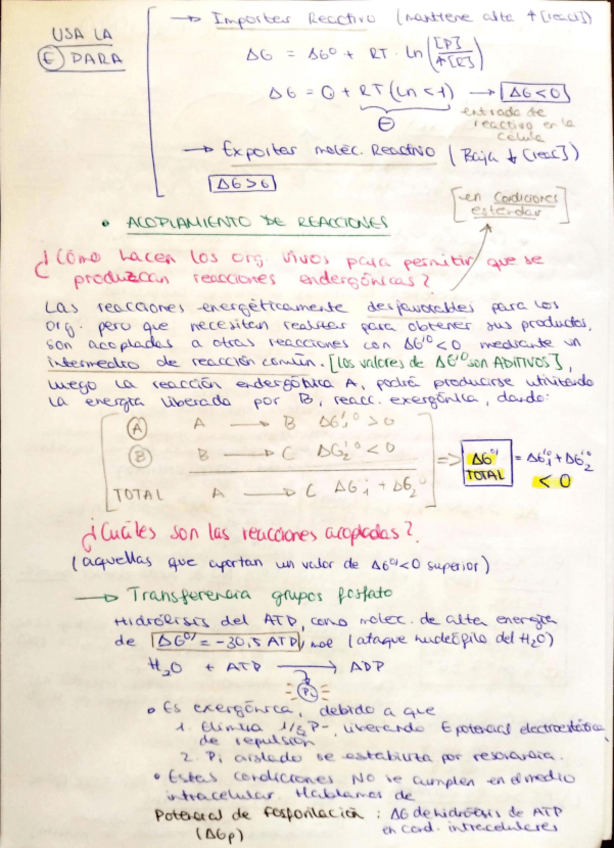 USA LA
Ⓔ PARA
→ Importar Reactivo (mantiene alta ↑[react])
ΔG = ΔG⁰ + RT · Ln([P]/↑[R])
ΔG = 0 + RT (Ln < 1) → ΔG < 0
⊖
entrada de
reactivo en la
célula
→ Exportar moléc. Reactivo (Baja ↓ [reac])
ΔG > 6
[en condiciones
estándar]
• ACOPLAMIENTO DE REACCIONES
¿Cómo hacen los org. vivos para permitir que se
produzcan reacciones endergónicas?
Las reacciones energéticamente desfavorables para los
org. pero que necesitan realizar para obtener sus productos,
son acopladas a otras reacciones con ΔG'⁰ < 0 mediante un
intermedio de reacción común. [Los valores de ΔG'⁰ son ADITIVOS],
luego la reacción endergónica A, podrá producirse utilizando
la energía liberada por B, reacc. exergónica, dando:
Ⓐ A → B ΔG₁'⁰ > 0
Ⓑ B → C ΔG₂'⁰ < 0
TOTAL A → C ΔG₁' + ΔG₂'⁰
=> ΔG⁰' TOTAL = ΔG₁'⁰ + ΔG₂'⁰
< 0
¿Cuáles son las reacciones acopladas?
(aquellas que aportan un valor de ΔG⁰' < 0 superior)
→ Transferencia grupos fosfato
Hidrólisis del ATP, como moléc. de alta energía
de ΔG⁰' = -30,5 ATP/mol (ataque nucleófilo del H₂O)
H₂O + ATP → ADP
Pi
• Es exergónica, debido a que
1. Elimina P-, liberando E potencial electroestática
de repulsión
2. Pi aislado se estabiliza por resonancia.
• Estas condiciones NO se cumplen en el medio
intracelular. Hablamos de
Potencial de fosforilación : ΔG de hidrólisis de ATP
(ΔGp) en cond. intracelulares